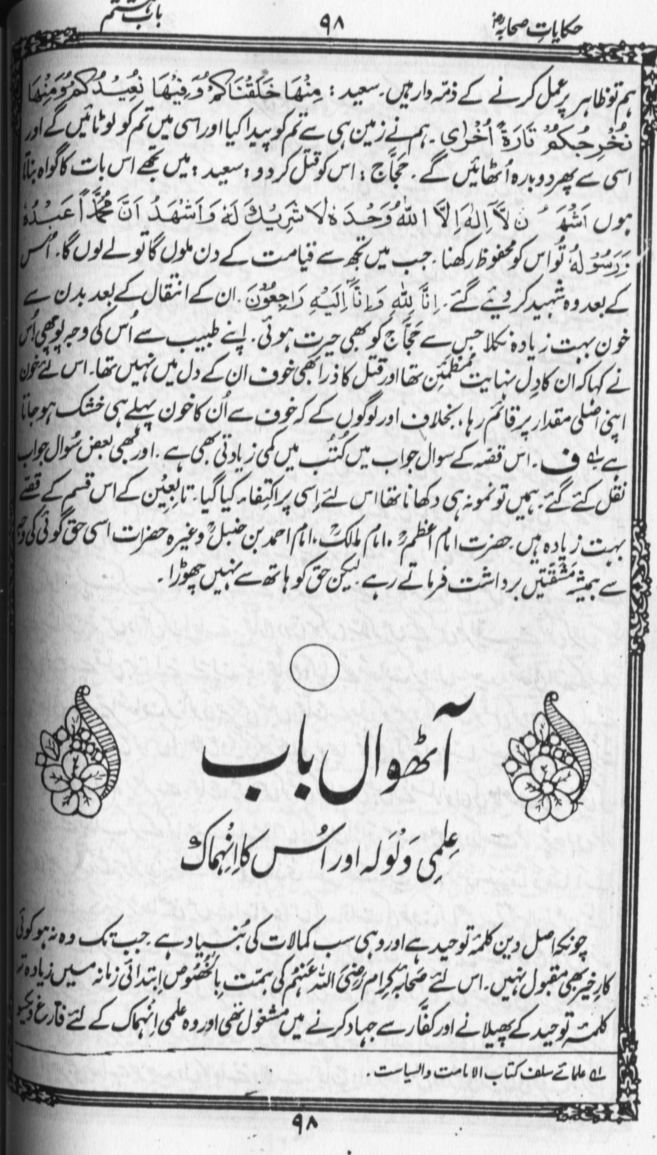 حکایاتِ صحابہؓ
۹۸
باب ہشتم
ہم تو ظاہر پر عمل کرنے کے ذمہ دار ہیں۔ سعید: مِنْهَا خَلَقْنَاكُمْ وَفِيْهَا نُعِيْدُكُمْ وَمِنْهَا
نُخْرِجُكُمْ تَارَةً أُخْرٰى۔ ہم نے زمین ہی سے تم کو پیدا کیا اور اسی میں تم کو لوٹائیں گے اور
اسی سے پھر دوبارہ اُٹھائیں گے۔ حجّاج: اس کو قتل کر دو: سعید: میں تجھے اس بات کا گواہ بناتا
ہوں اَشْهَدُ اَنْ لَّا اِلٰهَ اِلَّا اللهُ وَحْدَهٗ لَا شَرِيْكَ لَهٗ وَاَشْهَدُ اَنَّ مُحَمَّدًا عَبْدُهٗ
وَرَسُوْلُهٗ تُو اس کو محفوظ رکھنا۔ جب میں تجھ سے قیامت کے دن ملوں گا تو لے لوں گا۔ اُس
کے بعد وہ شہید کر دیئے گئے۔ اِنَّا لِلّٰهِ وَاِنَّا اِلَيْهِ رَاجِعُوْنَ۔ ان کے انتقال کے بعد بدن سے
خون بہت زیادہ نکلا جس سے حجّاج کو بھی حیرت ہوئی۔ اپنے طبیب سے اُس کی وجہ پوچھی اُس
نے کہا کہ ان کا دِل نہایت مُطمَئِن تھا اور قتل کا ذرا بھی خوف ان کے دل میں نہیں تھا۔ اس لئے خون
اپنی اصلی مقدار پر قائم رہا، بخلاف اور لوگوں کے کہ خوف سے اُن کا خون پہلے ہی خشک ہو جاتا
ہے ؎۱ ف۔ اس قصہ کے سوال جواب میں کُتُب میں کمی زیادتی بھی ہے۔ اور بھی بعض سُوال جواب
نقل کئے گئے ہمیں تو نمونہ ہی دکھانا تھا اس لئے اِسی پر اکتفا کیا گیا۔ تابِعین کے اس قسم کے قصّے
بہت زیادہ ہیں۔ حضرت امام اعظمؒ، امام مالکؒ، امام احمد بن حنبلؒ وغیرہ حضرات اسی حق گوئی کی وجہ
سے ہمیشہ مَشقّتیں برداشت فرماتے رہے۔ لیکن حق کو ہاتھ سے نہیں چھوڑا۔
آٹھواں باب
عِلمی وَلْوَلہ اور اُس کا اِنْہماک
چونکہ اصل دین کلمۂ توحید ہے اور وہی سب کمالات کی بُنیاد ہے۔ جب تک وہ نہ ہو کوئی
کارِ خیر بھی مقبول نہیں۔ اس لئے صحابۂ کرام رضی اللہ عنہم کی ہمّت بالخُصُوص اِبتدائی زمانہ میں زیادہ تر
کلمۂ توحید کے پھیلانے اور کفّار سے جہاد کرنے میں مشغول تھی اور وہ علمی اِنہماک کے لئے فارغ و یکسو
؎۱ علمائے سلف کتاب الامامت والسیاست۔
۹۸